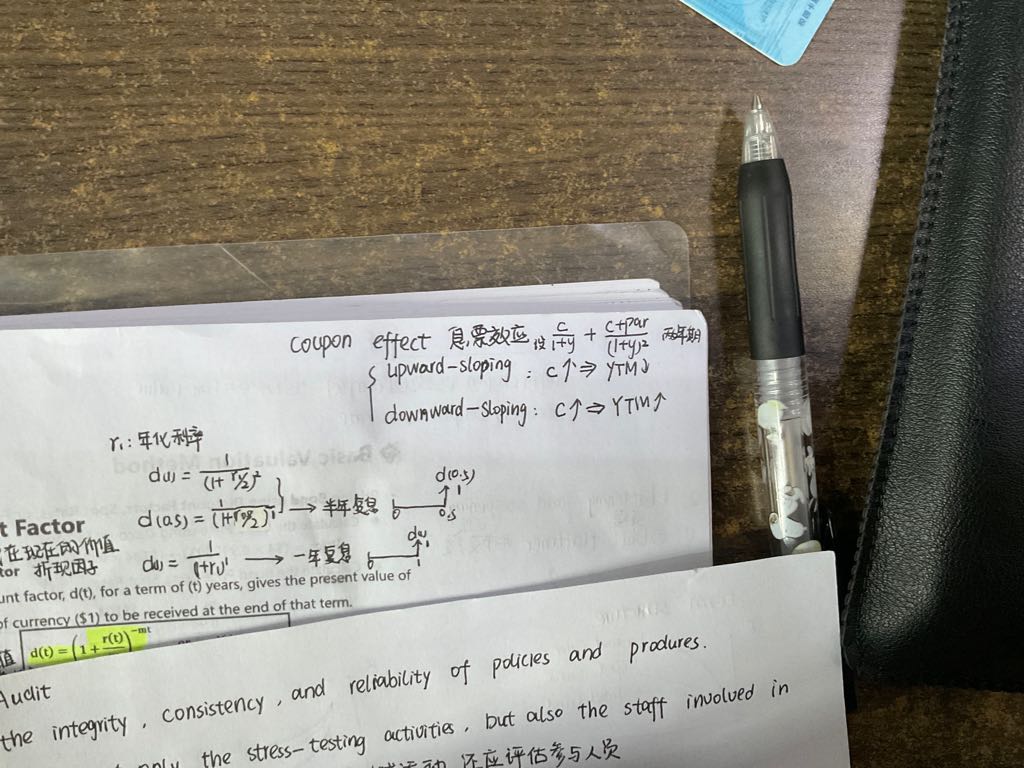 coupon effect 息票效应 设 c/1+y + c+par/(1+y)² 两年期
upward-sloping : c↑⇒ YTM↓
downward-sloping : c↑⇒ YTM↑
r₁: 年化利率
d(1) = 1/(1+r₁/2)²
d(0.5) = 1/(1+r0.5/2)¹ → 半年复息 0 0.5 d(0.5) 1
t Factor
在现在的价值
tor 折现因子
d(1) = 1/(1+r₁)¹ → 一年复息 0 1 d(1) 1
unt factor, d(t), for a term of (t) years, gives the present value of
of currency ($1) to be received at the end of that term.
值 d(t) = (1+ r(t)/ )^-mt
Audit
the integrity, consistency, and reliability of policies and produres.
only the stress-testing activities, but also the staff involved in
还应评估参与人员